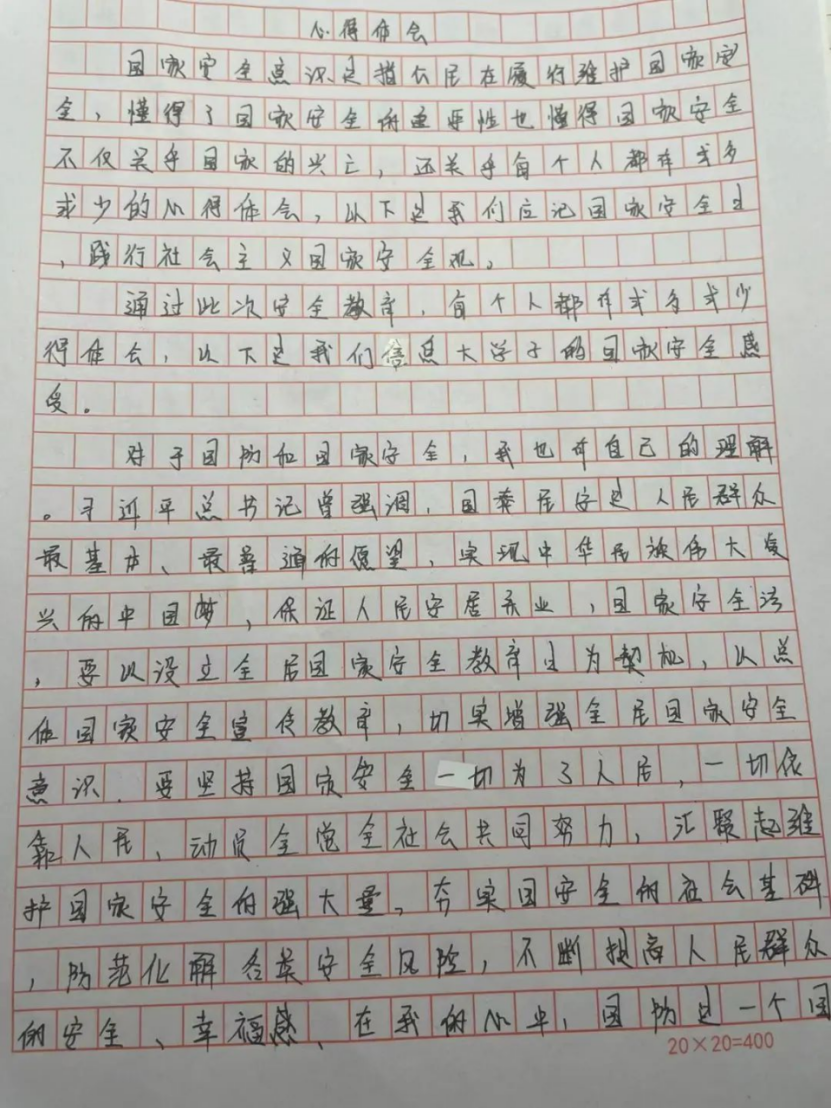 心得体会
国家安全意识是指公民在履行维护国家安
全，懂得了国家安全的重要性也懂得国家安全
不仅关乎国家的兴亡，还关乎每个人都有或多
或少的心得体会，以下是我们应记国家安全
，践行社会主义国家安全观。
通过此次安全教育，每个人都有或多或少
得体会，以下是我们信息大学子的国家安全感
受。
对于国防和国家安全，我也有自己的理解
。习近平总书记曾强调，国泰民安是人民群众
最基本、最普通的愿望，实现中华民族伟大复
兴的中国梦，保证人民安居乐业，国家安全法
，要以设立全民国家安全教育日为契机，以总
体国家安全宣传教育，切实增强全民国家安全
意识．要坚持国家安全一切为了人民，一切依
靠人民、动员全党全社会共同努力，汇聚起维
护国家安全的强大量。夯实国安全的社会基础
，防范化解各类安全风险，不断提高人民群众
的安全、幸福感、在我的心中，国防是一个国
20×20=400